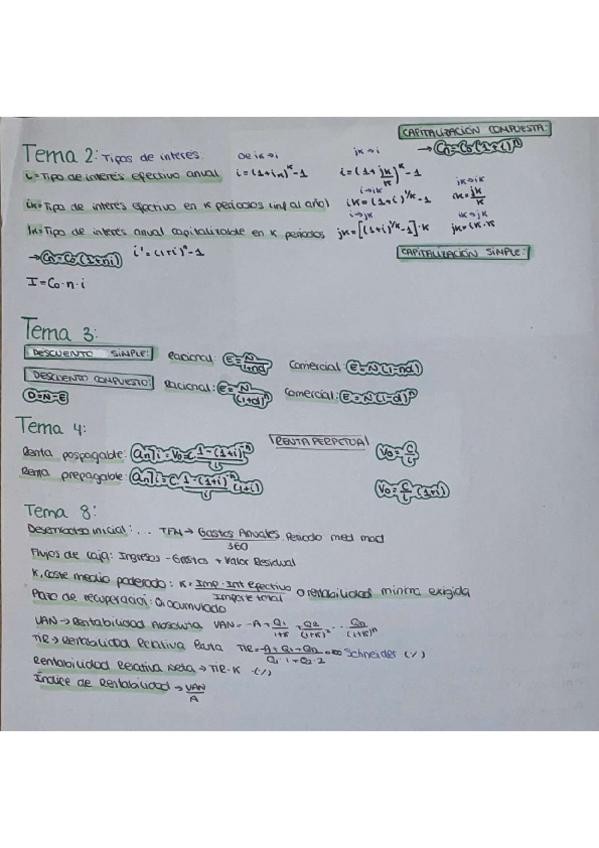 CAPITALIZACIÓN COMPUESTA:
→ Cn=Co(1+i)^n
Tema 2: Tipos de interés. De ik→i jk→i
i=Tipo de interés efectivo anual i=(1+ik)^k-1 i=(1+jk/k)^k-1
i→ik jk→ik
ik=Tipo de interés efectivo en k periodos (inf al año) ik=(1+i)^1/k-1 ik=jk/k
i→jk ik→jk
jk=Tipo de interés anual capitalizable en k periodos jk=[(1+i)^1/k-1]·k jk=ik·k
→ Cn=Co(1+ni) i'=(1+i)^n-1 CAPITALIZACIÓN SIMPLE:
I=Co·n·i
Tema 3:
DESCUENTO SIMPLE: Racional: E=N/1+nd Comercial: E=N(1-nd)
DESCUENTO COMPUESTO: Racional: E=N/(1+d)^n Comercial: E=N(1-d)^n
D=N-E
Tema 4:
RENTA PERPETUA
Renta pospagable: an]i=Vo=C 1-(1+i)^-n/i Vo=C/i
Renta prepagable: an]i=C 1-(1+i)^-n/i (1+i) Vo=C/i (1+i)
Tema 8:
Desembolso inicial: ... TFM→ Gastos Anuales/360 · Periodo med mad
Flujos de caja: Ingresos - Gastos + Valor Residual
K, coste medio poderado: K= Imp · Int efectivo/Importe total o rentabilidad minima exigida
Plazo de recuperació: Qi acumulado
VAN→ Rentabilidad Absoluta VAN=-A+Q1/1+K+Q2/(1+K)^2 ... Qn/(1+K)^n
TIR→ Rentabilidad Relativa Bruta TIR=-A+Q1+Q2/Q1·1+Q2·2 Schneider (%)
Rentabilidad Relativa Neta → TIR-K (%)
Índice de Rentabilidad → VAN/A